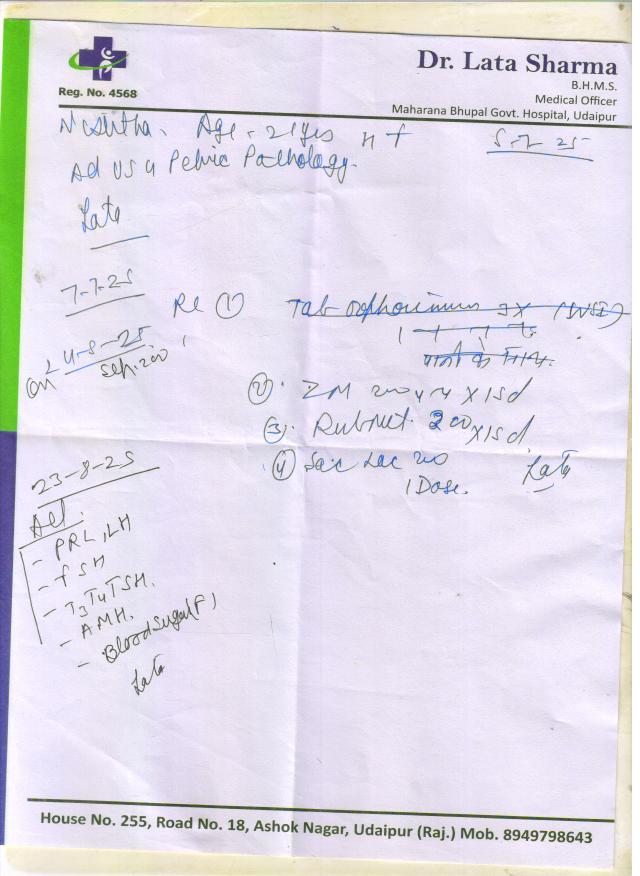 Dr. Lata Sharma
B.H.M.S.
Medical Officer
Maharana Bhupal Govt. Hospital, Udaipur
Reg. No. 4568
Age - 21 yrs
5-7-25
Ad USG Pelvic Pathology.
Lata
7-7-25
① Tab 3X
On 4-8-25
Sep. 200
② 200 X 15d
③ 200 X 15d
④ Sac Lac 200
1 Dose.
Lata
23-8-25
Ad.
- PRL, LH
- FSH
- T3 T4 TSH.
- AMH.
- Blood Sugar (F)
Lata
House No. 255, Road No. 18, Ashok Nagar, Udaipur (Raj.) Mob. 8949798643